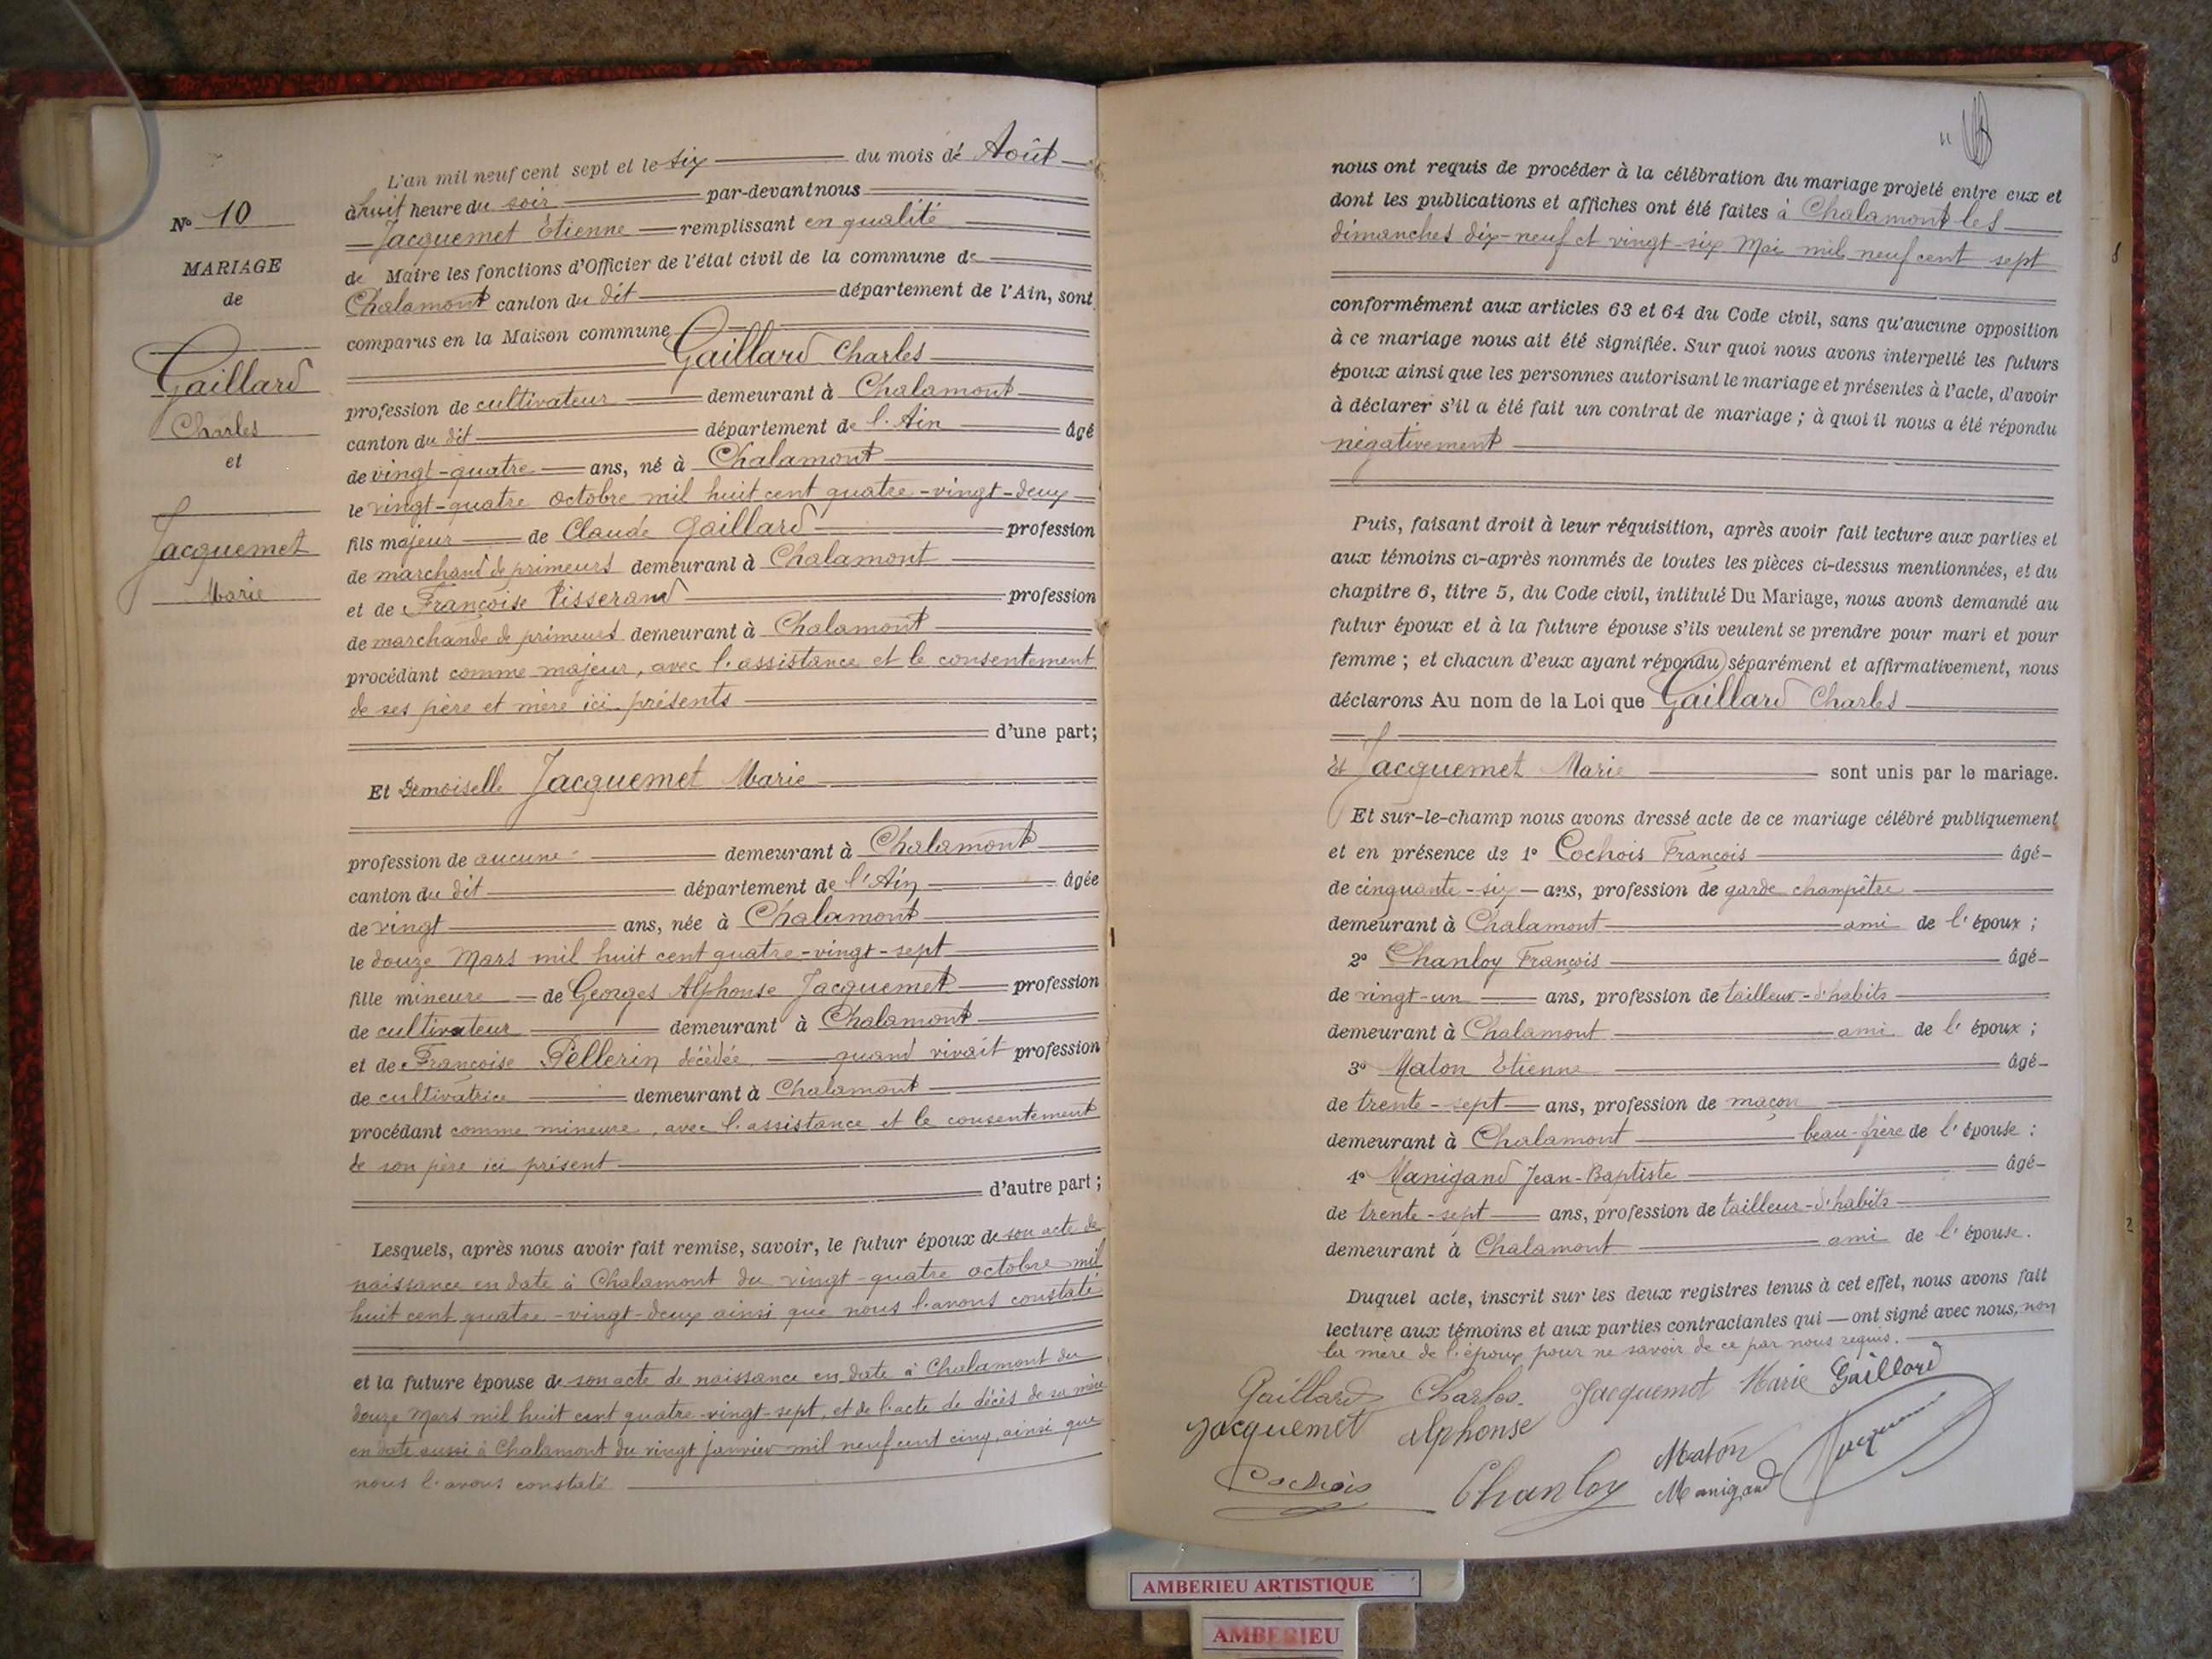 N° 10
MARIAGE
de
Gaillard
Charles
et
Jacquemet
Marie
L'an mil neuf cent sept et le six du mois de Août
à huit heure du soir par-devant nous
Jacquemet Etienne remplissant en qualité
de Maire les fonctions d'Officier de l'état civil de la commune de
Chalamont canton du dit département de l'Ain, sont
comparus en la Maison commune
Gaillard Charles
profession de cultivateur demeurant à Chalamont
canton du dit département de l'Ain âgé
de vingt-quatre ans, né à Chalamont
le vingt-quatre octobre mil huit cent quatre-vingt-deux
fils majeur de Claude Gaillard profession
de marchand de primeurs demeurant à Chalamont
et de Françoise Tisserand profession
de marchande de primeurs demeurant à Chalamont
procédant comme majeur, avec l'assistance et le consentement
de ses père et mère ici présents
d'une part;
Et Demoiselle Jacquemet Marie
profession de aucune demeurant à Chalamont
canton du dit département de l'Ain âgée
de vingt ans, née à Chalamont
le douze Mars mil huit cent quatre-vingt-sept
fille mineure de Georges Alphonse Jacquemet profession
de cultivateur demeurant à Chalamont
et de Françoise Pellerin décédée quand vivait profession
de cultivatrice demeurant à Chalamont
procédant comme mineure, avec l'assistance et le consentement
de son père ici présent
d'autre part;
Lesquels, après nous avoir fait remise, savoir, le futur époux de son acte de
naissance en date à Chalamont du vingt-quatre octobre mil
huit cent quatre-vingt-deux ainsi que nous l'avons constaté
et la future épouse de son acte de naissance en date à Chalamont du
douze Mars mil huit cent quatre-vingt-sept, et de l'acte de décès de sa mère
en date aussi à Chalamont du vingt janvier mil neuf cent cinq, ainsi que
nous l'avons constaté
11
nous ont requis de procéder à la célébration du mariage projeté entre eux et
dont les publications et affiches ont été faites à Chalamont les
dimanches dix-neuf et vingt-six Mai mil neuf cent sept
conformément aux articles 63 et 64 du Code civil, sans qu'aucune opposition
à ce mariage nous ait été signifiée. Sur quoi nous avons interpellé les futurs
époux ainsi que les personnes autorisant le mariage et présentes à l'acte, d'avoir
à déclarer s'il a été fait un contrat de mariage; à quoi il nous a été répondu
négativement
Puis, faisant droit à leur réquisition, après avoir fait lecture aux parties et
aux témoins ci-après nommés de toutes les pièces ci-dessus mentionnées, et du
chapitre 6, titre 5, du Code civil, intitulé Du Mariage, nous avons demandé au
futur époux et à la future épouse s'ils veulent se prendre pour mari et pour
femme; et chacun d'eux ayant répondu séparément et affirmativement, nous
déclarons Au nom de la Loi que Gaillard Charles
Et Jacquemet Marie sont unis par le mariage.
Et sur-le-champ nous avons dressé acte de ce mariage célébré publiquement
et en présence de 1° Cochois François âgé
de cinquante-six ans, profession de garde champêtre
demeurant à Chalamont ami de l'époux;
2° Chanloy François âgé
de vingt-un ans, profession de tailleur-d'habits
demeurant à Chalamont ami de l'époux;
3° Maton Etienne âgé
de trente-sept ans, profession de maçon
demeurant à Chalamont beau-frère de l'épouse:
4° Manigand Jean-Baptiste âgé
de trente-sept ans, profession de tailleur-d'habits
demeurant à Chalamont ami de l'épouse.
Duquel acte, inscrit sur les deux registres tenus à cet effet, nous avons fait
lecture aux témoins et aux parties contractantes qui ont signé avec nous, non
la mère de l'époux pour ne savoir de ce par nous requis.
Gaillard Charles. Jacquemet Marie Gaillard
Jacquemet Alphonse
Cochois Chanloy Maton
Manigand
AMBERIEU ARTISTIQUE
AMBERIEU